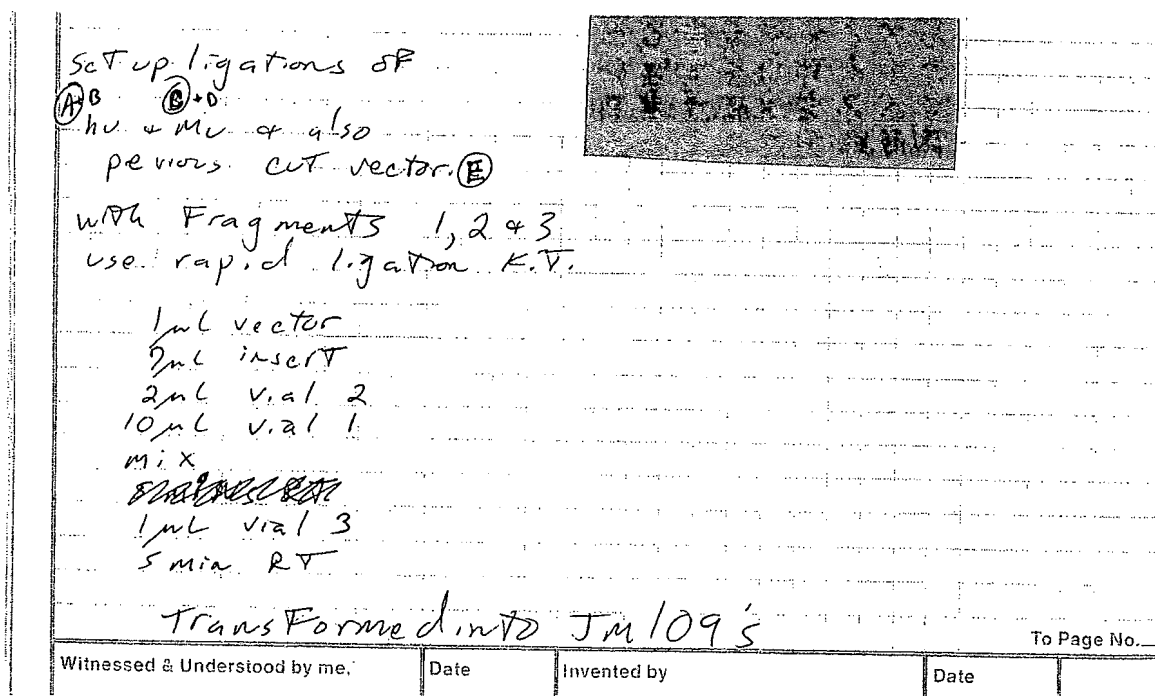 Set up ligations of
A+B C+D
hv + mv & also
pevious cut vector. E
with Fragments 1, 2 & 3
use rapid ligation Kit.
1µL vector
7µL insert
2µL vial 2
10µL vial 1
mix
1µL vial 3
5 min RT
Transformed into Jm109's
To Page No.
Witnessed & Understood by me, Date Invented by Date